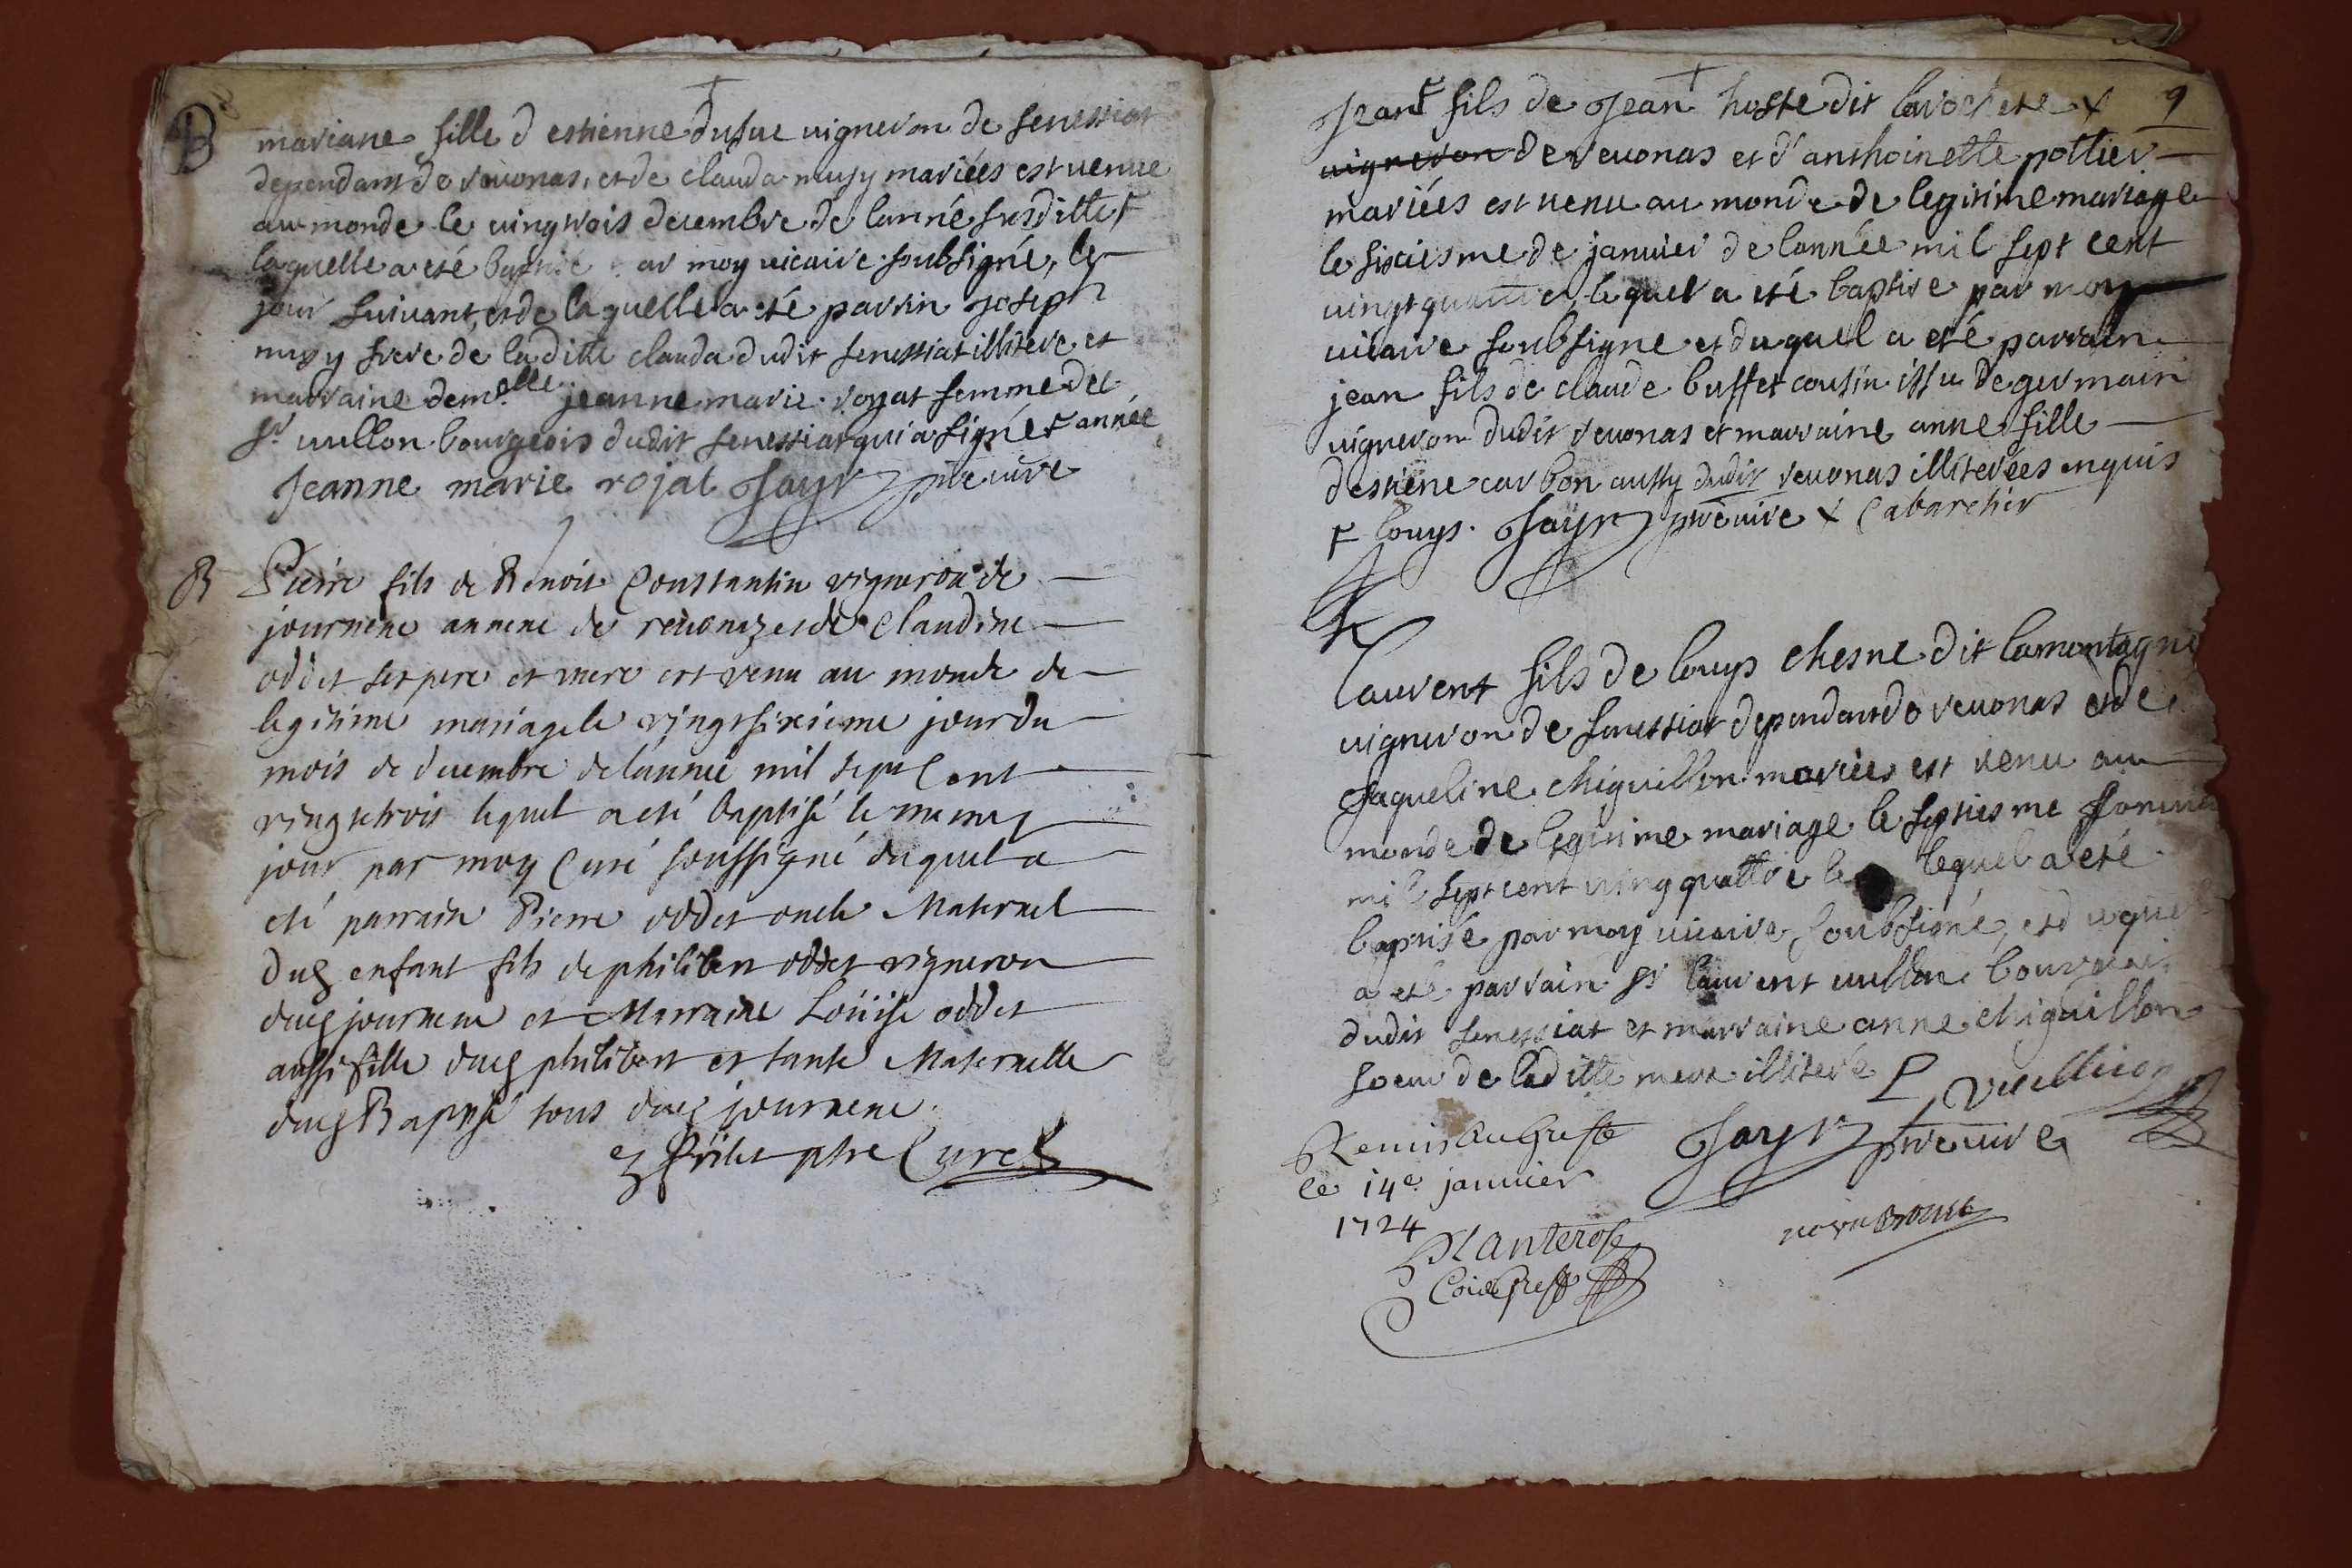 B
mariane fille d estienne dufue vigneron de senessiat
dependant de revonas, et de clauda musy mariées est venue
au monde le vingtrois decembre de lanné susditte +
laquelle a eté baptisé par moy vicaire soubsigné, le
jour suivant, et de laquelle a eté parrin joseph
musy frere de laditte clauda dudit senessiat illitere et
marraine dem.elle jeanne marie rojat femme de
Sr vullon bourgeois dudit senessiat qui a signé + année
Jeanne marie rojat Jayr ptre vicre
B
Pierre fils de Benoit Constantin vigneron de
journene annexe de revonaz et de Claudine
oddet ses pere et mere est venu au monde de
legitime mariage le vingt sixieme jour du
mois de decembre de lannée mil sept Cent
vingt trois lequel a eté baptisé le meme
jour par moy Curé soussigné duquel a
eté parrain Pierre oddet oncle Maternel
dud enfant fils de philibert oddet vigneron
dud journene et Marraine Loüise oddet
aussi fille dud philibert et tante Maternelle
dud Baptisé tous dud journene.
ptre Curé
9
Jean + fils de Jean hoste dit larochete x
vigneron de revonas et d'anthoinette pottier
mariées est venu au monde de legitime mariage
le sixiesme de janvier de lannée mil sept cent
vingt quattre, lequel a eté baptise par moy
vicaire soubsigne et duquel a eté parrain
jean fils de claude buffet cousin issu de germain
vigneron dudit revonas et marraine anne fille
destiene carbon aussy dudit revonas illiterées enquis
+ louys. Jayr ptre vicre x Cabaretier
Laurent fils de louys chesne dit lamontagne
vigneron de senessiat dependant de revonas et de
Jaqueline chiguillon mariées est venu au
monde de legitime mariage le septiesme Janvier
mil sept cent ving quattre le lequel a eté
baptisé par moy vicaire soubsigné, et duquel
a eté parrain Sr laurent vullon bourgeois
dudit senessiat et marraine anne chiguillon
soeur de laditte mere illitere L Vuillion
Remis au Greffe
le 14e janvier
1724
Jayr ptre vicre
Planterose